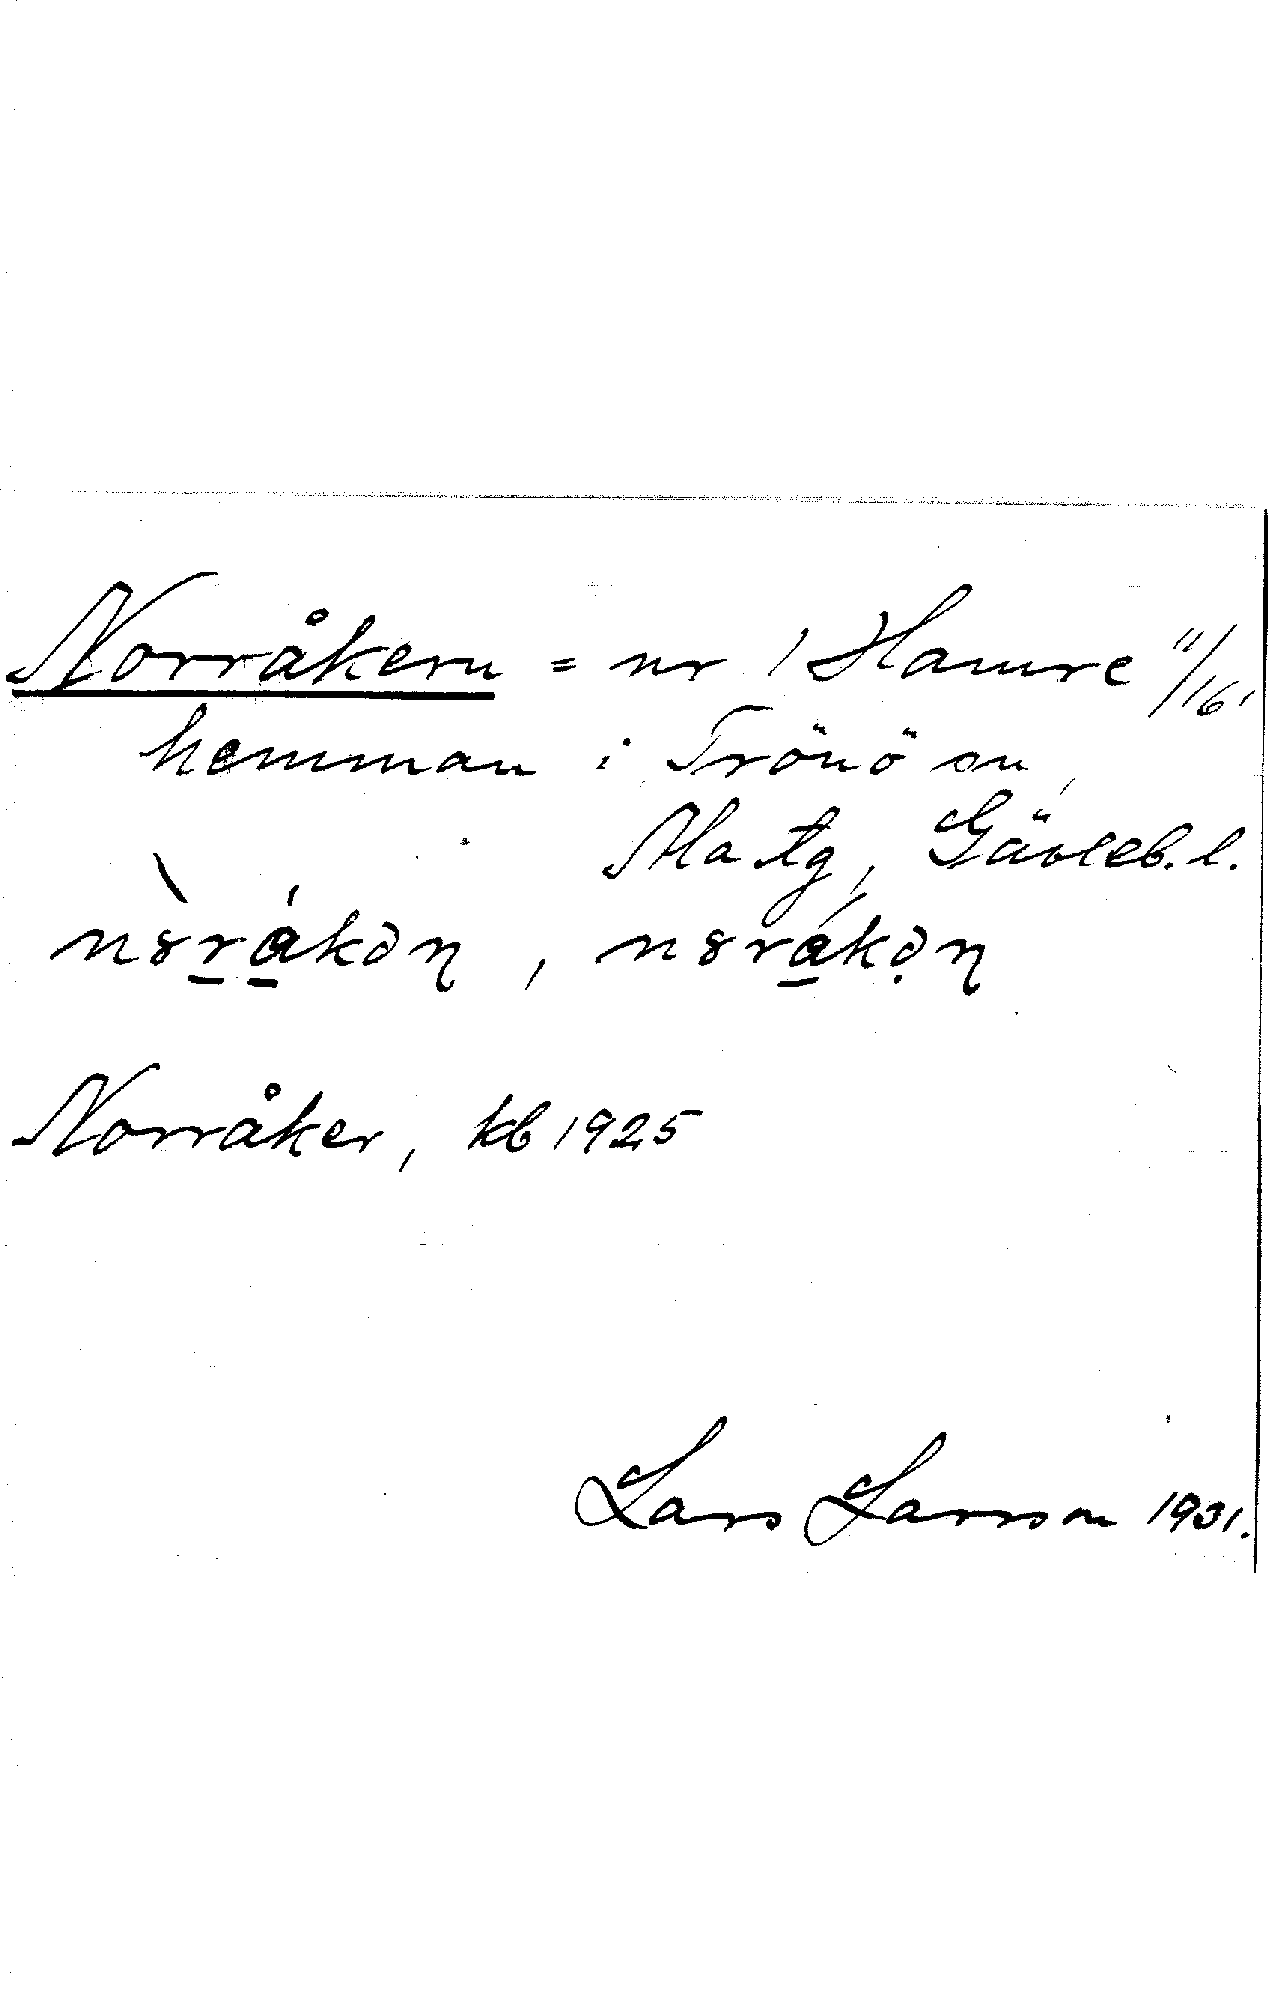 Norråkern = nr 1 Hamre 11/16,
hemman i Trönö sn,
Ala tg, Gävleb. l.
Norråker, kb 1925
Lars Larsson 1931.